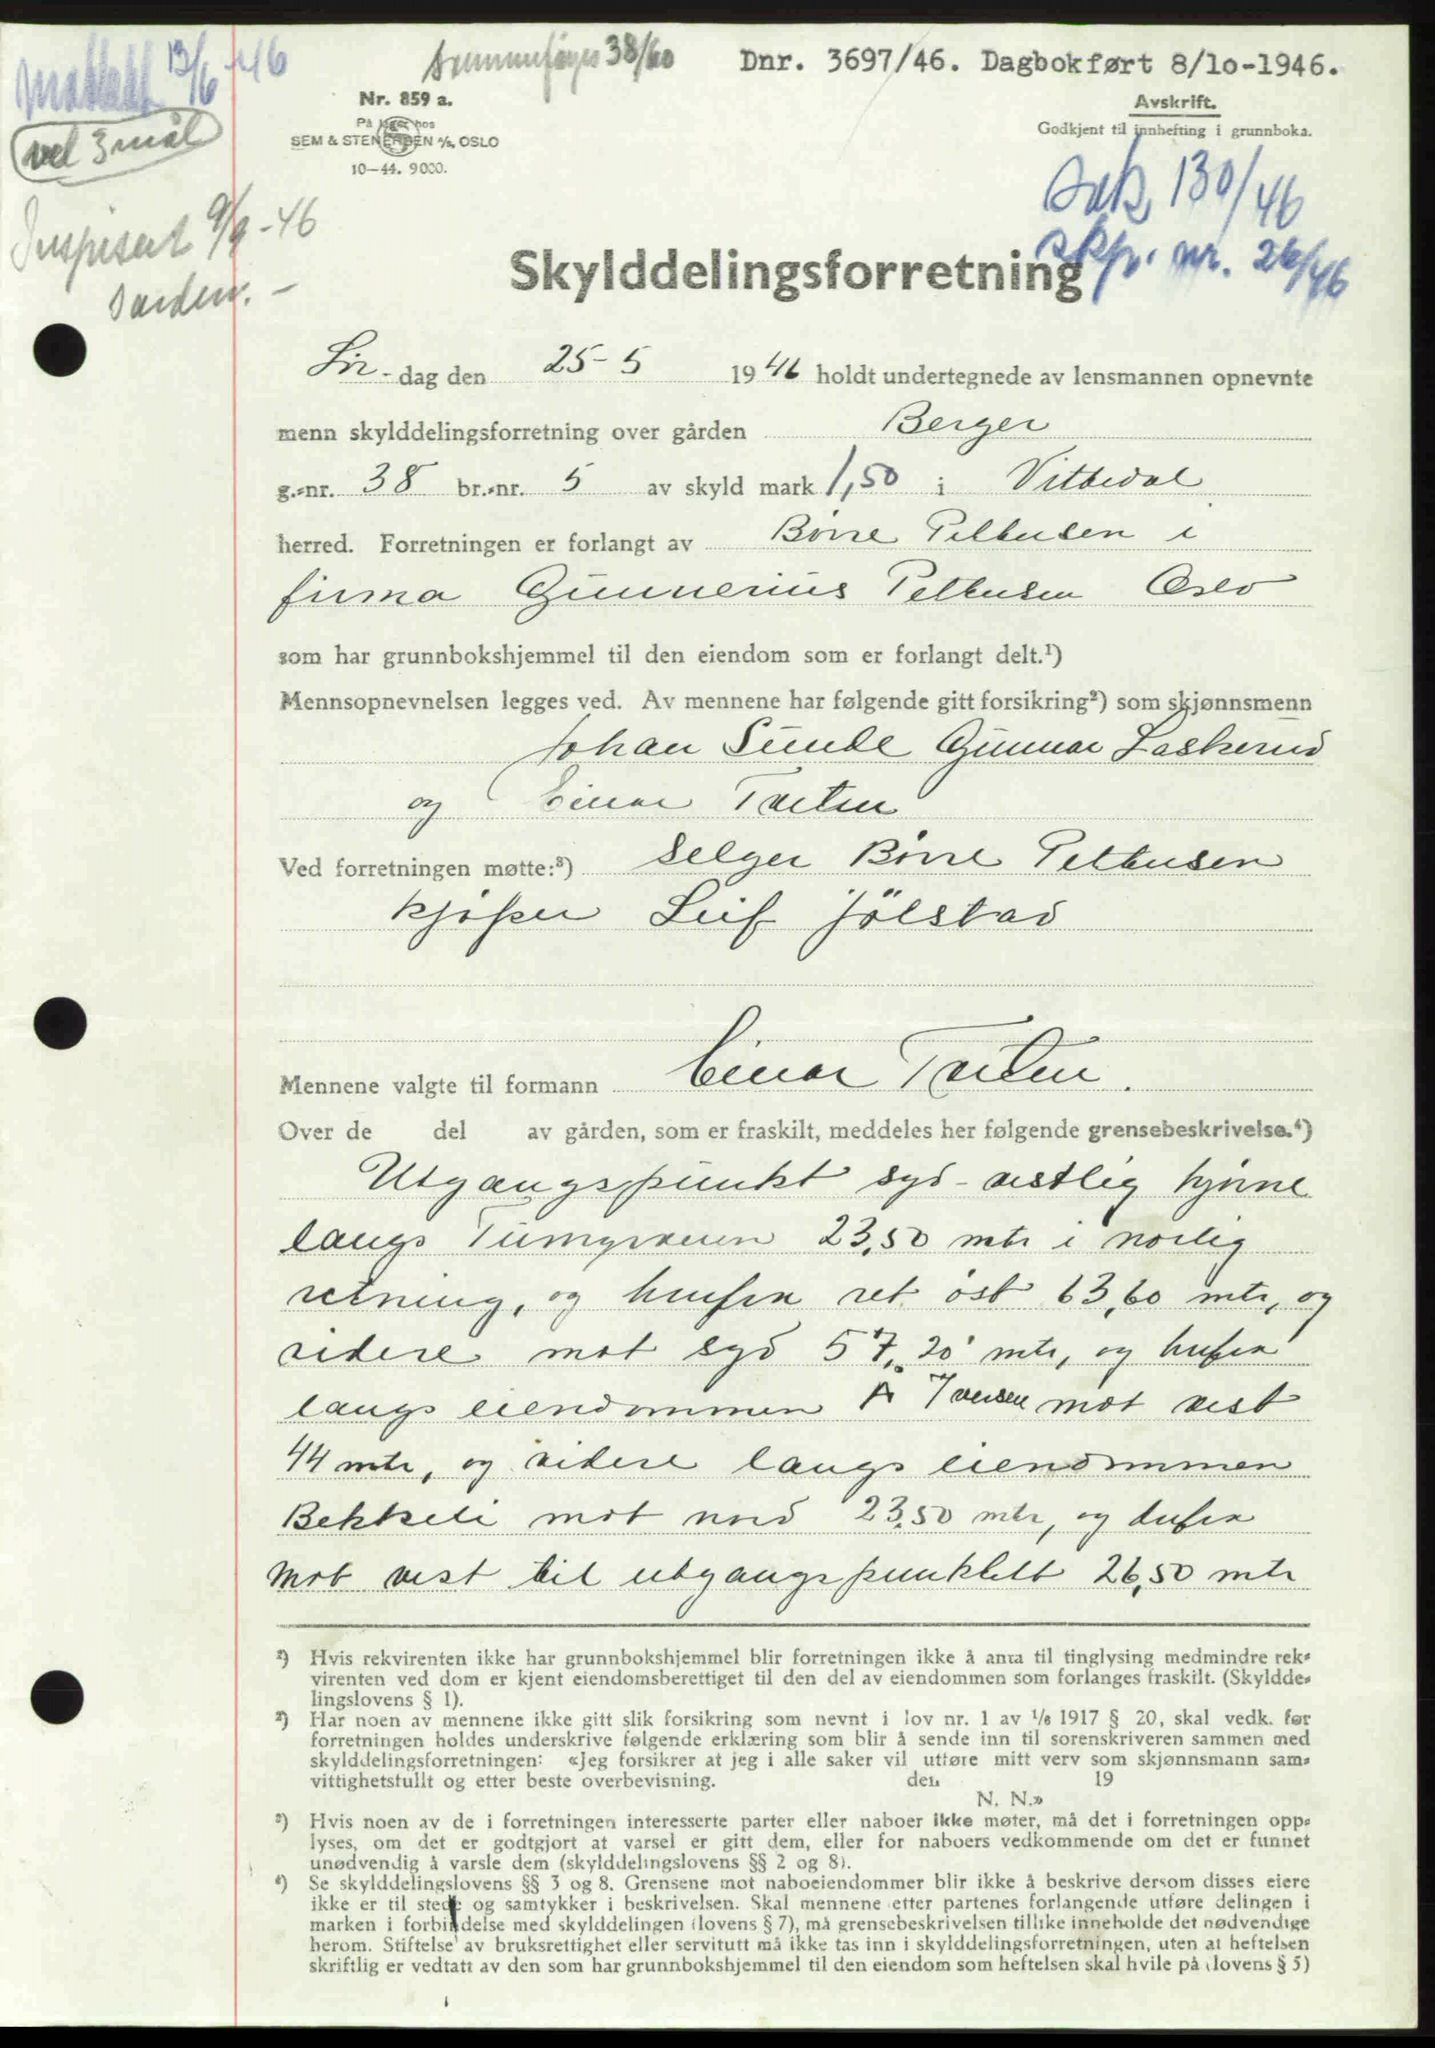 Mattatt 13/6-46
Sammenføyes 38/60
Dnr. 3697/46. Dagbokført 8/10-1946.
Nr. 859 a.
På lager hos
SEM & STENERSEN A/S, OSLO
10-44. 9000.
Avskrift.
Godkjent til innhefting i grunnboka.
vel 3 mål
Inspisert 9/9-46
Sak 130/46
skp. nr. 26/46
Skylddelingsforretning
Lør-dag den 25-5 1946 holdt undertegnede av lensmannen opnevnte
menn skylddelingsforretning over gården Berger
g.-nr. 38 br.-nr. 5 av skyld mark 1,50 i Nittedal
herred. Forretningen er forlangt av Børre Pettersen i
firma Gunnerius Pettersen Oslo
som har grunnbokshjemmel til den eiendom som er forlangt delt.¹)
Mennsopnevnelsen legges ved. Av mennene har følgende gitt forsikring²) som skjønnsmenn
Johan Sunde Gunnar Laskerud
og Einar Tveten
Ved forretningen møtte:³) Selger Børre Pettersen
kjøper Leif Jölstad
Mennene valgte til formann Einar Tveten.
Over de del av gården, som er fraskilt, meddeles her følgende grensebeskrivelse.⁴)
Utgangspunkt syd-vestlig hjørne
langs 23,50 mtr i nordlig
retning, og herfra ret øst 63,60 mtr, og
videre mot syd 57,20 mtr, og herfra
langs eiendommen A Iversen mot vest
44 mtr, og videre langs eiendommen
Bekkeli mot nord 23,50 mtr, og derfra
mot vest til utgangspunktett 26,50 mtr
¹) Hvis rekvirenten ikke har grunnbokshjemmel blir forretningen ikke å anta til tinglysing medmindre rek-
virenten ved dom er kjent eiendomsberettiget til den del av eiendommen som forlanges fraskilt. (Skyldde-
lingslovens § 1).
²) Har noen av mennene ikke gitt slik forsikring som nevnt i lov nr. 1 av 1/6 1917 § 20, skal vedk. før
forretningen holdes underskrive følgende erklæring som blir å sende inn til sorenskriveren sammen med
skylddelingsforretningen: «Jeg forsikrer at jeg i alle saker vil utføre mitt verv som skjønnsmann sam-
vittighetsfullt og etter beste overbevisning. den 19
N. N.»
³) Hvis noen av de i forretningen interesserte parter eller naboer ikke møter, må det i forretningen opp-
lyses, om det er godtgjort at varsel er gitt dem, eller for naboers vedkommende om det er funnet
unødvendig å varsle dem (skylddelingslovens §§ 2 og 8).
⁴) Se skylddelingslovens §§ 3 og 8. Grensene mot naboeiendommer blir ikke å beskrive dersom disses eiere
ikke er til stede og samtykker i beskrivelsen. Skal mennene etter partenes forlangende utføre delingen i
marken i forbindelse med skylddelingen (lovens § 7), må grensebeskrivelsen tillike inneholde det nødvendige
herom. Stiftelse av bruksrettighet eller servitutt må ikke tas inn i skylddelingsforretningen, uten at heftelsen
skriftlig er vedtatt av den som har grunnbokshjemmel til den eiendom som heftelsen skal hvile på (lovens § 5)